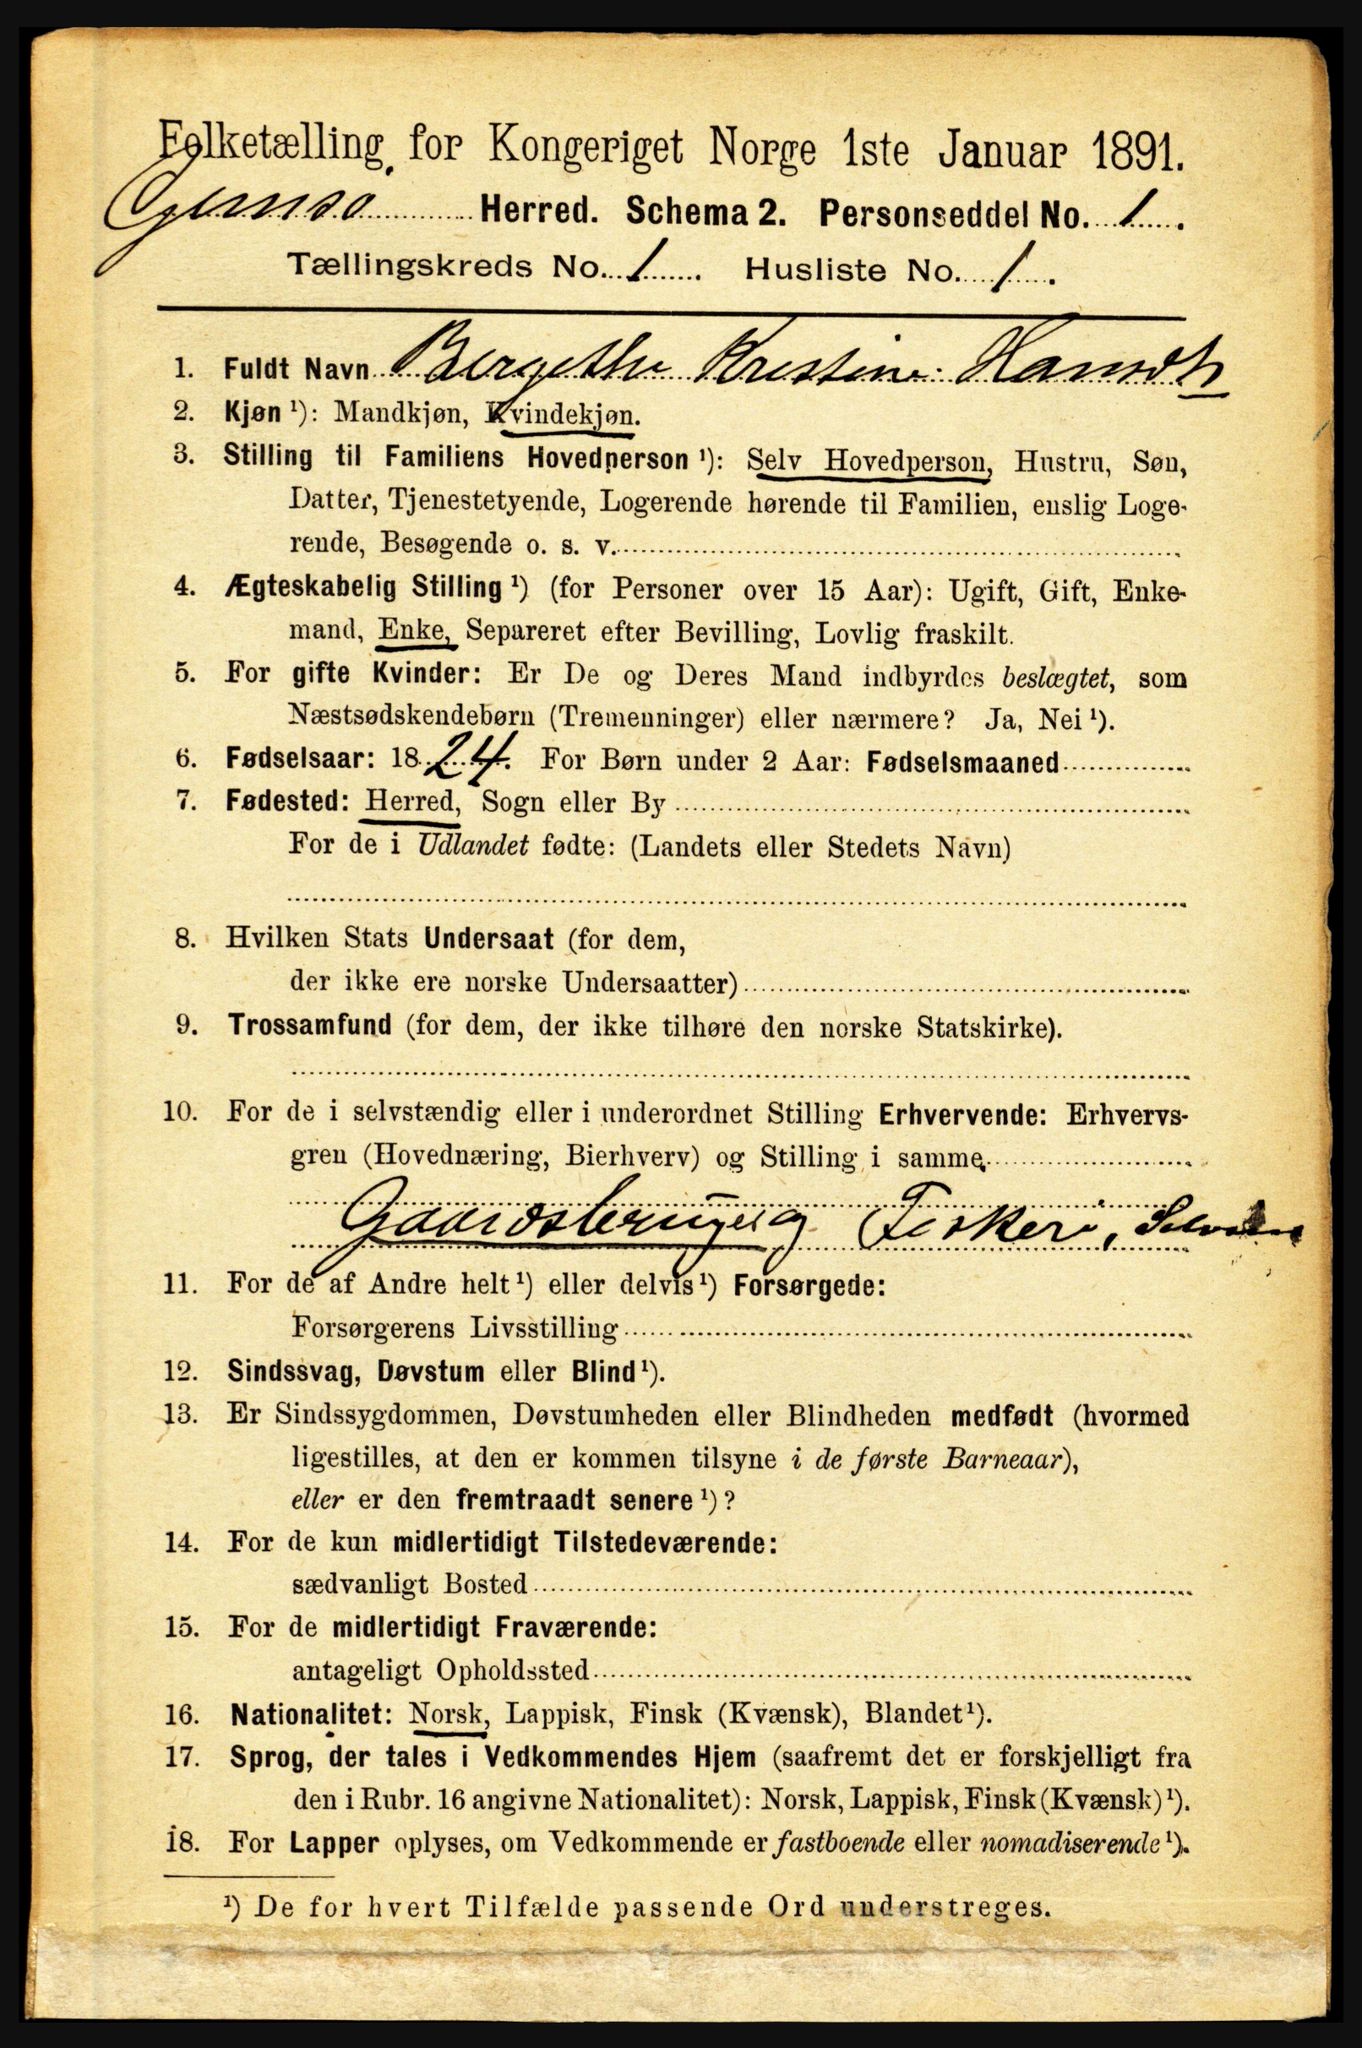 Folketælling for Kongeriget Norge 1ste Januar 1891.
Gimsø Herred. Schema 2. Personseddel No. 1.
Tællingskreds No. 1. Husliste No. 1.
1. Fuldt Navn Bergethe Kristine Hansdt
2. Kjøn ¹): Mandkjøn, Kvindekjøn.
3. Stilling til Familiens Hovedperson ¹): Selv Hovedperson, Hustru, Søn,
Datter, Tjenestetyende, Logerende hørende til Familien, enslig Loge-
rende, Besøgende o. s. v.
4. Ægteskabelig Stilling ¹) (for Personer over 15 Aar): Ugift, Gift, Enke-
mand, Enke, Separeret efter Bevilling, Lovlig fraskilt.
5. For gifte Kvinder: Er De og Deres Mand indbyrdes beslægtet, som
Næstsødskendebørn (Tremenninger) eller nærmere? Ja, Nei ¹).
6. Fødselsaar: 1824. For Børn under 2 Aar: Fødselsmaaned
7. Fødested: Herred, Sogn eller By
For de i Udlandet fødte: (Landets eller Stedets Navn)
8. Hvilken Stats Undersaat (for dem,
der ikke ere norske Undersaatter)
9. Trossamfund (for dem, der ikke tilhøre den norske Statskirke).
10. For de i selvstændig eller i underordnet Stilling Erhvervende: Erhvervs-
gren (Hovednæring, Bierhverv) og Stilling i samme
Gaardsbrug og Fiskeri, Selv
11. For de af Andre helt ¹) eller delvis ¹) Forsørgede:
Forsørgerens Livsstilling
12. Sindssvag, Døvstum eller Blind ¹).
13. Er Sindssygdommen, Døvstumheden eller Blindheden medfødt (hvormed
ligestilles, at den er kommen tilsyne i de første Barneaar),
eller er den fremtraadt senere ¹)?
14. For de kun midlertidigt Tilstedeværende:
sædvanligt Bosted
15. For de midlertidigt Fraværende:
antageligt Opholdssted
16. Nationalitet: Norsk, Lappisk, Finsk (Kvænsk), Blandet ¹).
17. Sprog, der tales i Vedkommendes Hjem (saafremt det er forskjelligt fra
den i Rubr. 16 angivne Nationalitet): Norsk, Lappisk, Finsk (Kvænsk) ¹).
18. For Lapper oplyses, om Vedkommende er fastboende eller nomadiserende ¹).
¹) De for hvert Tilfælde passende Ord understreges.